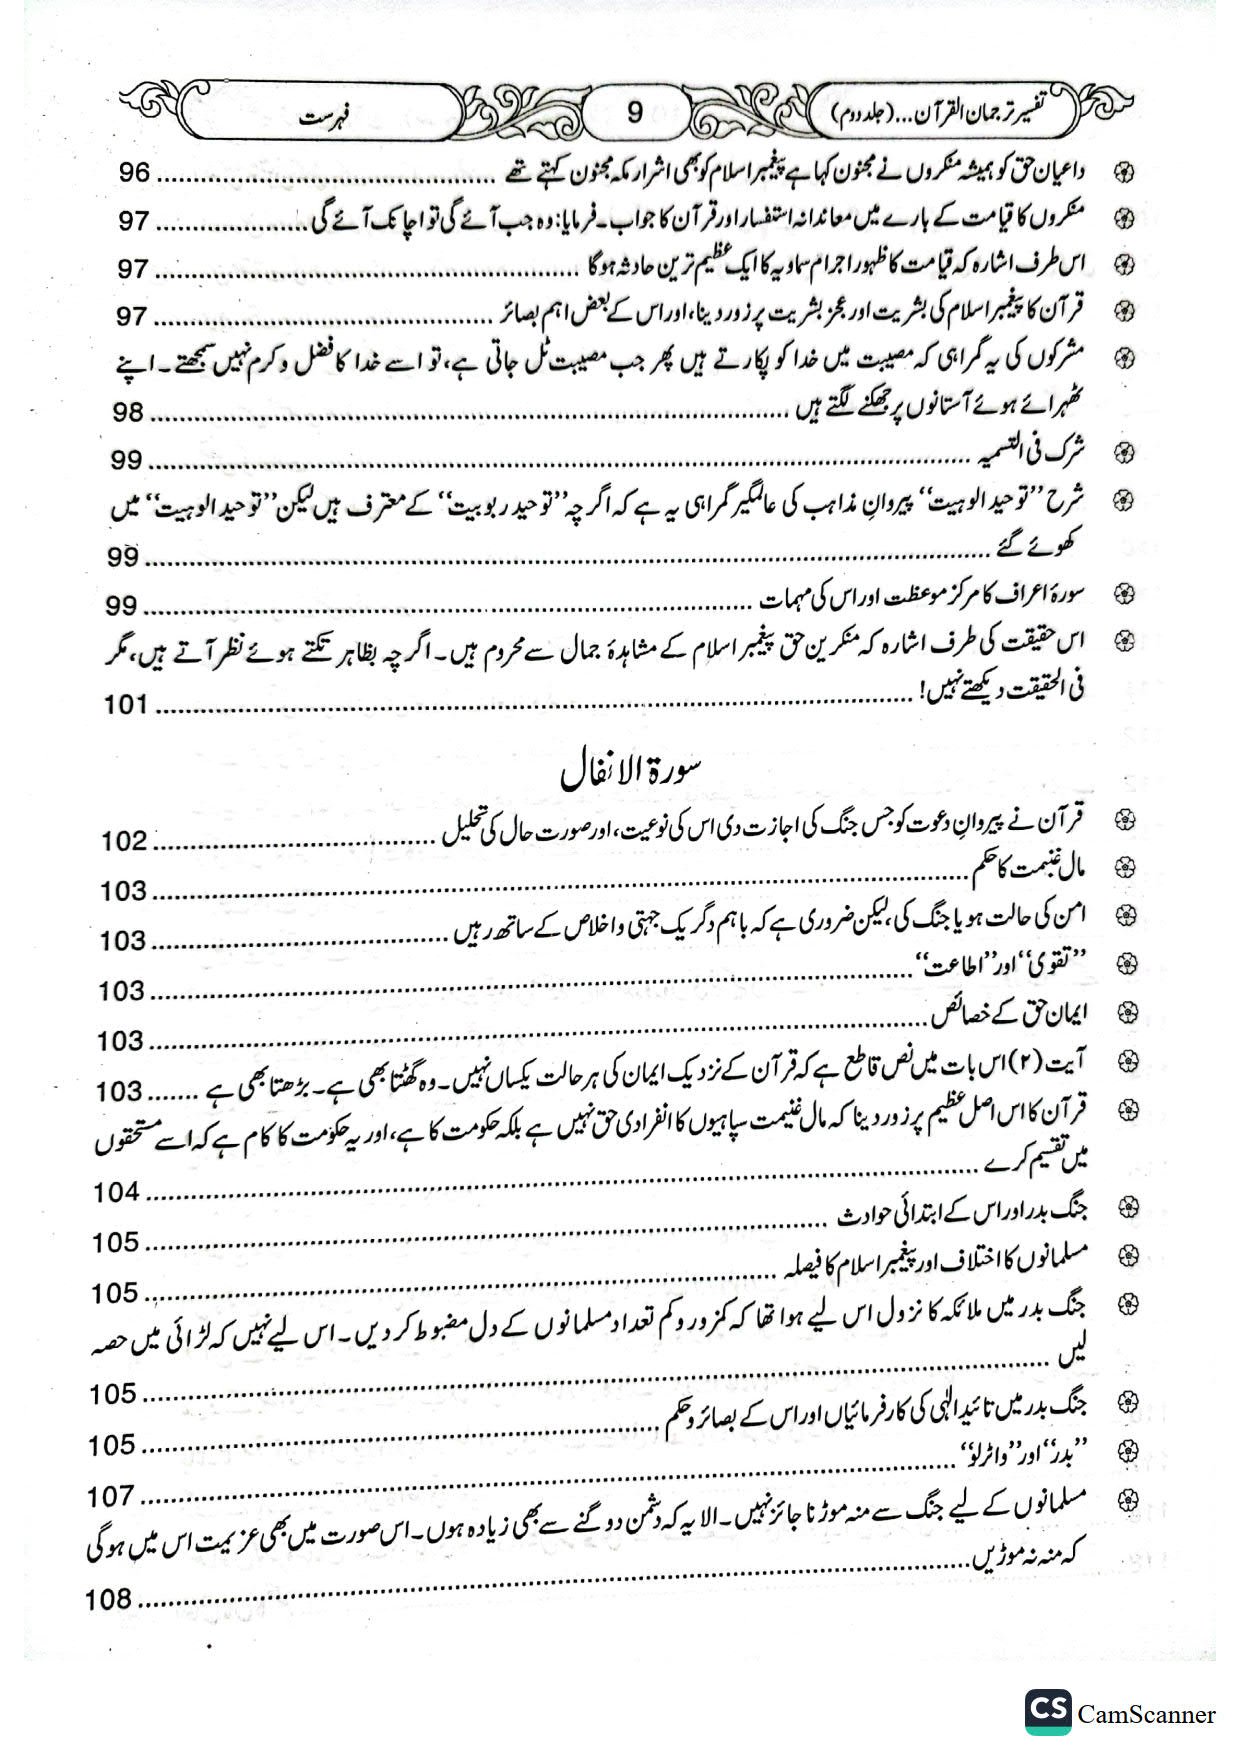 تفسیر ترجمان القرآن...(جلد دوم)
9
فہرست
داعیان حق کو ہمیشہ منکروں نے مجنون کہا ہے پیغمبر اسلام کو بھی اشرار مکہ مجنون کہتے تھے ........ 96
منکروں کا قیامت کے بارے میں معاندانہ استفسار اور قرآن کا جواب۔ فرمایا: وہ جب آئے گی تو اچانک آئے گی ........ 97
اس طرف اشارہ کہ قیامت کا ظہور اجرام سماویہ کا ایک عظیم ترین حادثہ ہوگا ........ 97
قرآن کا پیغمبر اسلام کی بشریت اور عجز بشریت پر زور دینا، اور اس کے بعض اہم بصائر ........ 97
مشرکوں کی یہ گمراہی کہ مصیبت میں خدا کو پکارتے ہیں پھر جب مصیبت ٹل جاتی ہے، تو اسے خدا کا فضل و کرم نہیں سمجھتے۔ اپنے
ٹھہرائے ہوئے آستانوں پر جھکنے لگتے ہیں ........ 98
شرک فی التسمیہ ........ 99
شرح ’’توحید الوہیت‘‘ پیروانِ مذاہب کی عالمگیر گمراہی یہ ہے کہ اگرچہ ’’توحید ربوبیت‘‘ کے معترف ہیں لیکن ’’توحید الوہیت‘‘ میں
کھوئے گئے ........ 99
سورۂ اعراف کا مرکز موعظت اور اس کی مہمات ........ 99
اس حقیقت کی طرف اشارہ کہ منکرین حق پیغمبر اسلام کے مشاہدۂ جمال سے محروم ہیں۔ اگرچہ بظاہر تکتے ہوئے نظر آتے ہیں، مگر
فی الحقیقت دیکھتے نہیں! ........ 101
سورۃ الانفال
قرآن نے پیروانِ دعوت کو جس جنگ کی اجازت دی اس کی نوعیت، اور صورت حال کی تحلیل ........ 102
مال غنیمت کا حکم ........ 103
امن کی حالت ہو یا جنگ کی، لیکن ضروری ہے کہ باہم دگر یک جہتی و اخلاص کے ساتھ رہیں ........ 103
’’تقویٰ‘‘ اور ’’اطاعت‘‘ ........ 103
ایمان حق کے خصائص ........ 103
آیت (۲) اس بات میں نص قاطع ہے کہ قرآن کے نزدیک ایمان کی ہر حالت یکساں نہیں۔ وہ گھٹتا بھی ہے۔ بڑھتا بھی ہے ....... 103
قرآن کا اس اصل عظیم پر زور دینا کہ مال غنیمت سپاہیوں کا انفرادی حق نہیں ہے بلکہ حکومت کا ہے، اور یہ حکومت کا کام ہے کہ اسے مستحقوں
میں تقسیم کرے ........ 104
جنگ بدر اور اس کے ابتدائی حوادث ........ 105
مسلمانوں کا اختلاف اور پیغمبر اسلام کا فیصلہ ........ 105
جنگ بدر میں ملائکہ کا نزول اس لیے ہوا تھا کہ کمزور و کم تعداد مسلمانوں کے دل مضبوط کر دیں۔ اس لیے نہیں کہ لڑائی میں حصہ
لیں ........ 105
جنگ بدر میں تائید الٰہی کی کارفرمائیاں اور اس کے بصائر و حکم ........ 105
’’بدر‘‘ اور ’’واٹرلو‘‘ ........ 107
مسلمانوں کے لیے جنگ سے منہ موڑنا جائز نہیں۔ الا یہ کہ دشمن دو گنے سے بھی زیادہ ہوں۔ اس صورت میں بھی عزیمت اس میں ہوگی
کہ منہ نہ موڑیں ........ 108
CS CamScanner